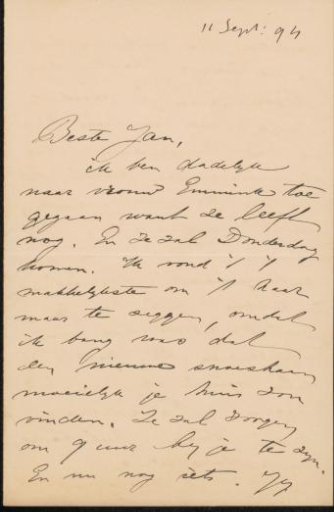 11 Sept: 94
Beste Jan,
ik ben dadelijk
naar vrouw Emmink toe
gegaan want ze leeft
nog. En ze zal Donderdag
komen. Ik vond 't 't
makkelijkste om 't haar
maar te zeggen, omdat
ik bang was dat
een nieuwe snoeshaan
moeielijk je huis zou
vinden. Ze zal zorgen
om 9 uur bij je te zijn.
En nu nog iets. Jij